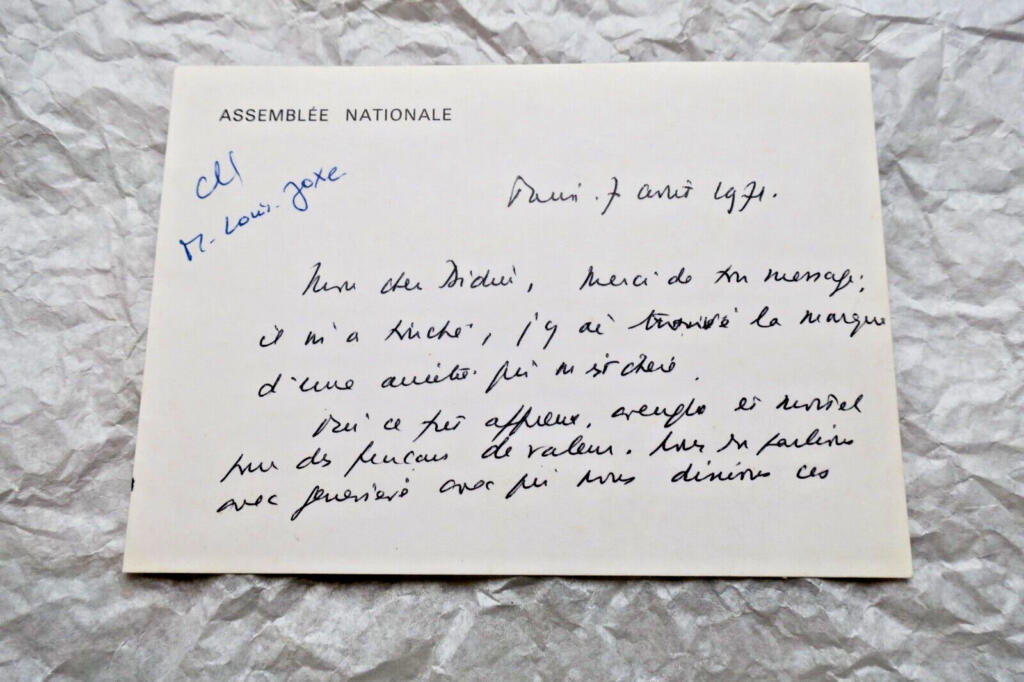 ASSEMBLÉE NATIONALE
M. Louis Joxe
Paris. 7 avril 1971.
Mon cher Didier, Merci de ton message;
il m'a touché, j'y ai trouvé la marque
d'une amitié qui m'est chère.
Oui ce fut affreux, aveugle et mortel
pour des français de valeur. Nous en parlions
avec Geneviève avec qui nous dînions ces